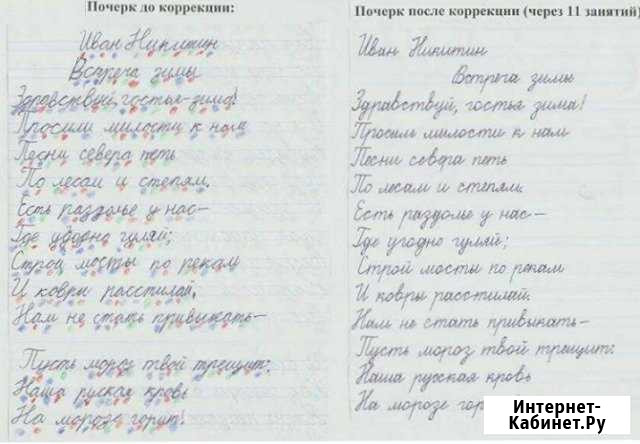 Почерк до коррекции:
Иван Никитин
Встреча зимы
Здравствуй, гостья-зима!
Просили милости к нам
Песни севера петь
По лесам и степям.
Есть раздолье у нас—
Где угодно гуляй;
Строй мосты по рекам
И ковры расстилай.
Нам не стать привыкать—
Пусть мороз твой трещит:
Наша руская кровь
На морозе горит!
Почерк после коррекции (через 11 занятий)
Иван Никитин
Встреча зимы
Здравствуй, гостья зима!
Просиль милости к нам
Песни севера петь
По лесам и степям.
Есть раздолье у нас—
Где угодно гуляй;
Строй мосты по рекам
И ковры расстилай.
Нам не стать привыкать—
Пусть мороз твой трещит:
Наша русская кровь
На морозе гор
Интернет-
Кабинет.Ру